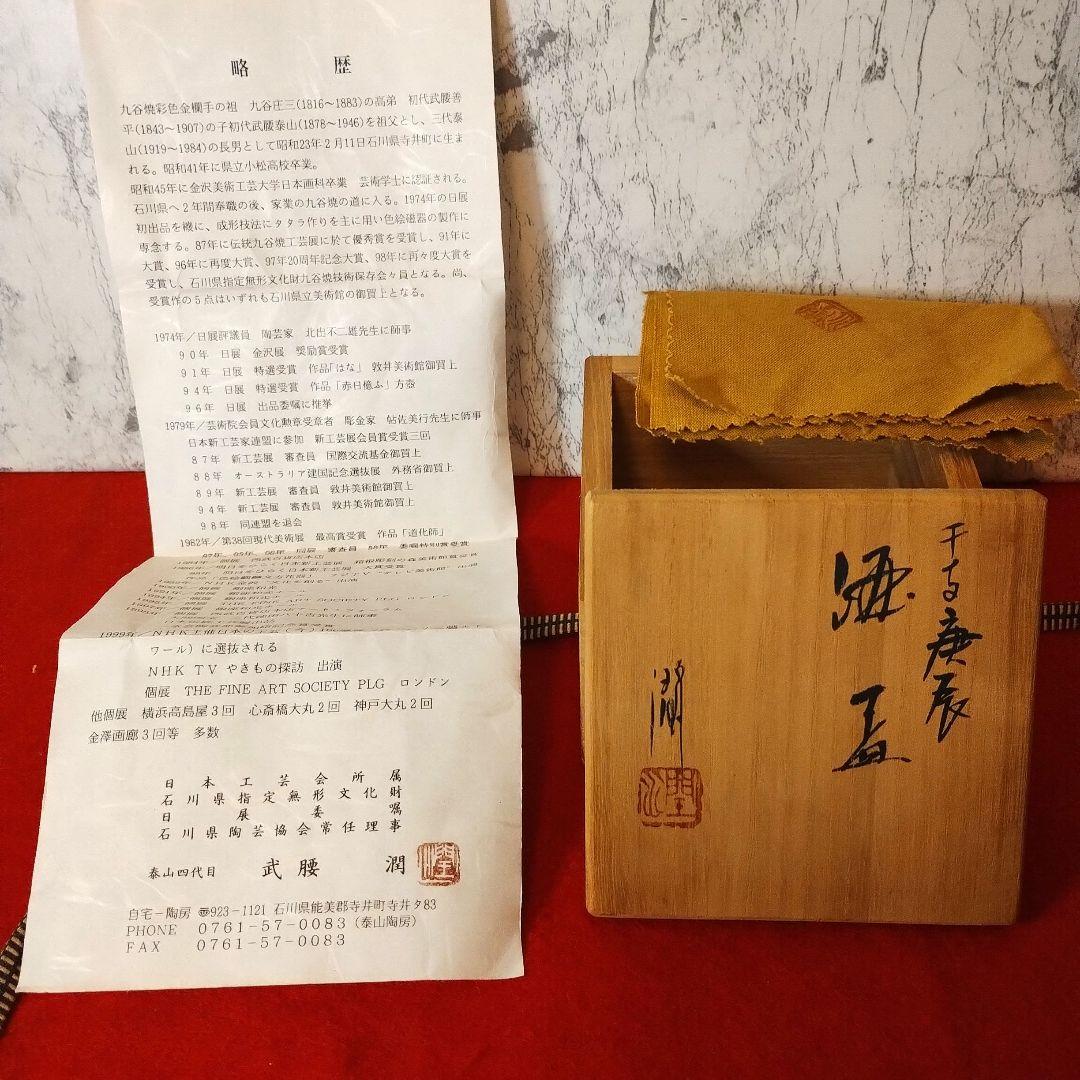 略歴
九谷焼彩色金欄手の祖 九谷庄三(1816〜1883)の高弟 初代武腰善
平(1843〜1907)の子初代武腰泰山(1878〜1946)を祖父とし、三代泰
山(1919〜1984)の長男として昭和23年2月11日石川県寺井町に生ま
れる。昭和41年に県立小松高校卒業。
昭和45年に金沢美術工芸大学日本画科卒業 芸術学士に認証される。
石川県へ2年間奉職の後、家業の九谷焼の道に入る。1974年の日展
初出品を機に、成形技法にタタラ作りを主に用い色絵磁器の製作に
専念する。87年に伝統九谷焼工芸展に於て優秀賞を受賞し、91年に
大賞、96年に再度大賞、97年20周年記念大賞、98年に再々度大賞を
受賞し、石川県指定無形文化財九谷焼技術保存会々員となる。尚、
受賞作の5点はいずれも石川県立美術館の御買上となる。
1974年/日展評議員 陶芸家 北出不二雄先生に師事
90年 日展 金沢展 奨励賞受賞
91年 日展 特選受賞 作品「はな」 敦井美術館御買上
94年 日展 特選受賞 作品「赤日億ふ」方壺
96年 日展 出品委嘱に推挙
1979年/芸術院会員文化勲章受章者 彫金家 帖佐美行先生に師事
日本新工芸家連盟に参加 新工芸展会員賞受賞三回
87年 新工芸展 審査員 国際交流基金御買上
88年 オーストラリア建国記念選抜展 外務省御買上
89年 新工芸展 審査員 敦井美術館御買上
94年 新工芸展 審査員 敦井美術館御買上
98年 同連盟を退会
1982年/第38回現代美術展 最高賞受賞 作品「道化師」
ワール)に選抜される
NHK TV やきもの探訪 出演
個展 THE FINE ART SOCIETY PLG ロンドン
他個展 横浜高島屋3回 心斎橋大丸2回 神戸大丸2回
金澤画廊3回等 多数
日本工芸会所属
石川県指定無形文化財
日展委嘱
石川県陶芸協会常任理事
泰山四代目 武腰 潤
自宅-陶房 〠923-1121 石川県能美郡寺井町寺井タ83
PHONE 0761-57-0083(泰山陶房)
FAX 0761-57-0083
干支庚辰
酒盃
潤